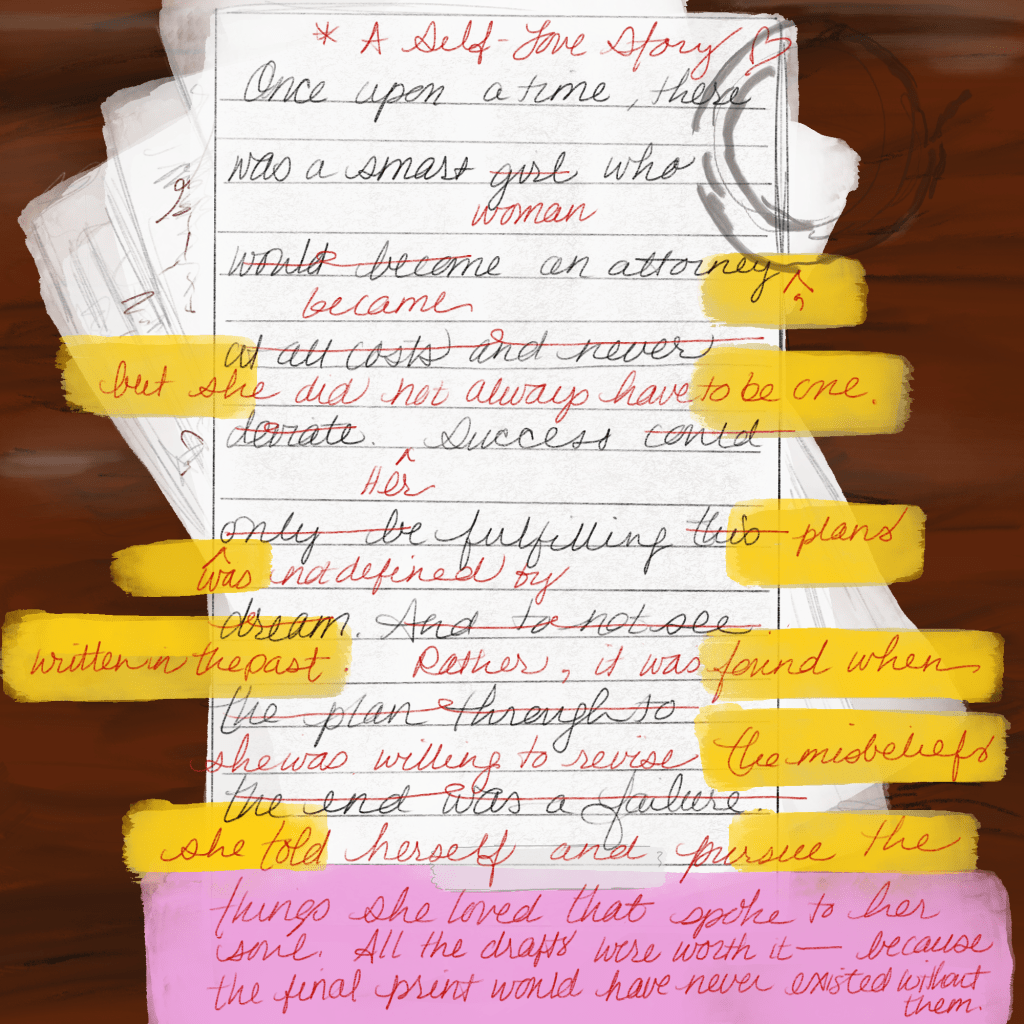 * A Self-Love Story ♡
Once upon a time, there
was a smart girl who
woman
would become an attorney ^,
became
at all costs and never
but she did not always have to be one.
deviate. Success could
^
Her
only be fulfilling this plans
^
was not defined by
dream. And to not see
written in the past. Rather, it was found when
the plan through to
she was willing to revise the misbeliefs
the end was a failure.
she told herself and pursue the
things she loved that spoke to her
soul. All the drafts were worth it — because
the final print would have never existed without
them.